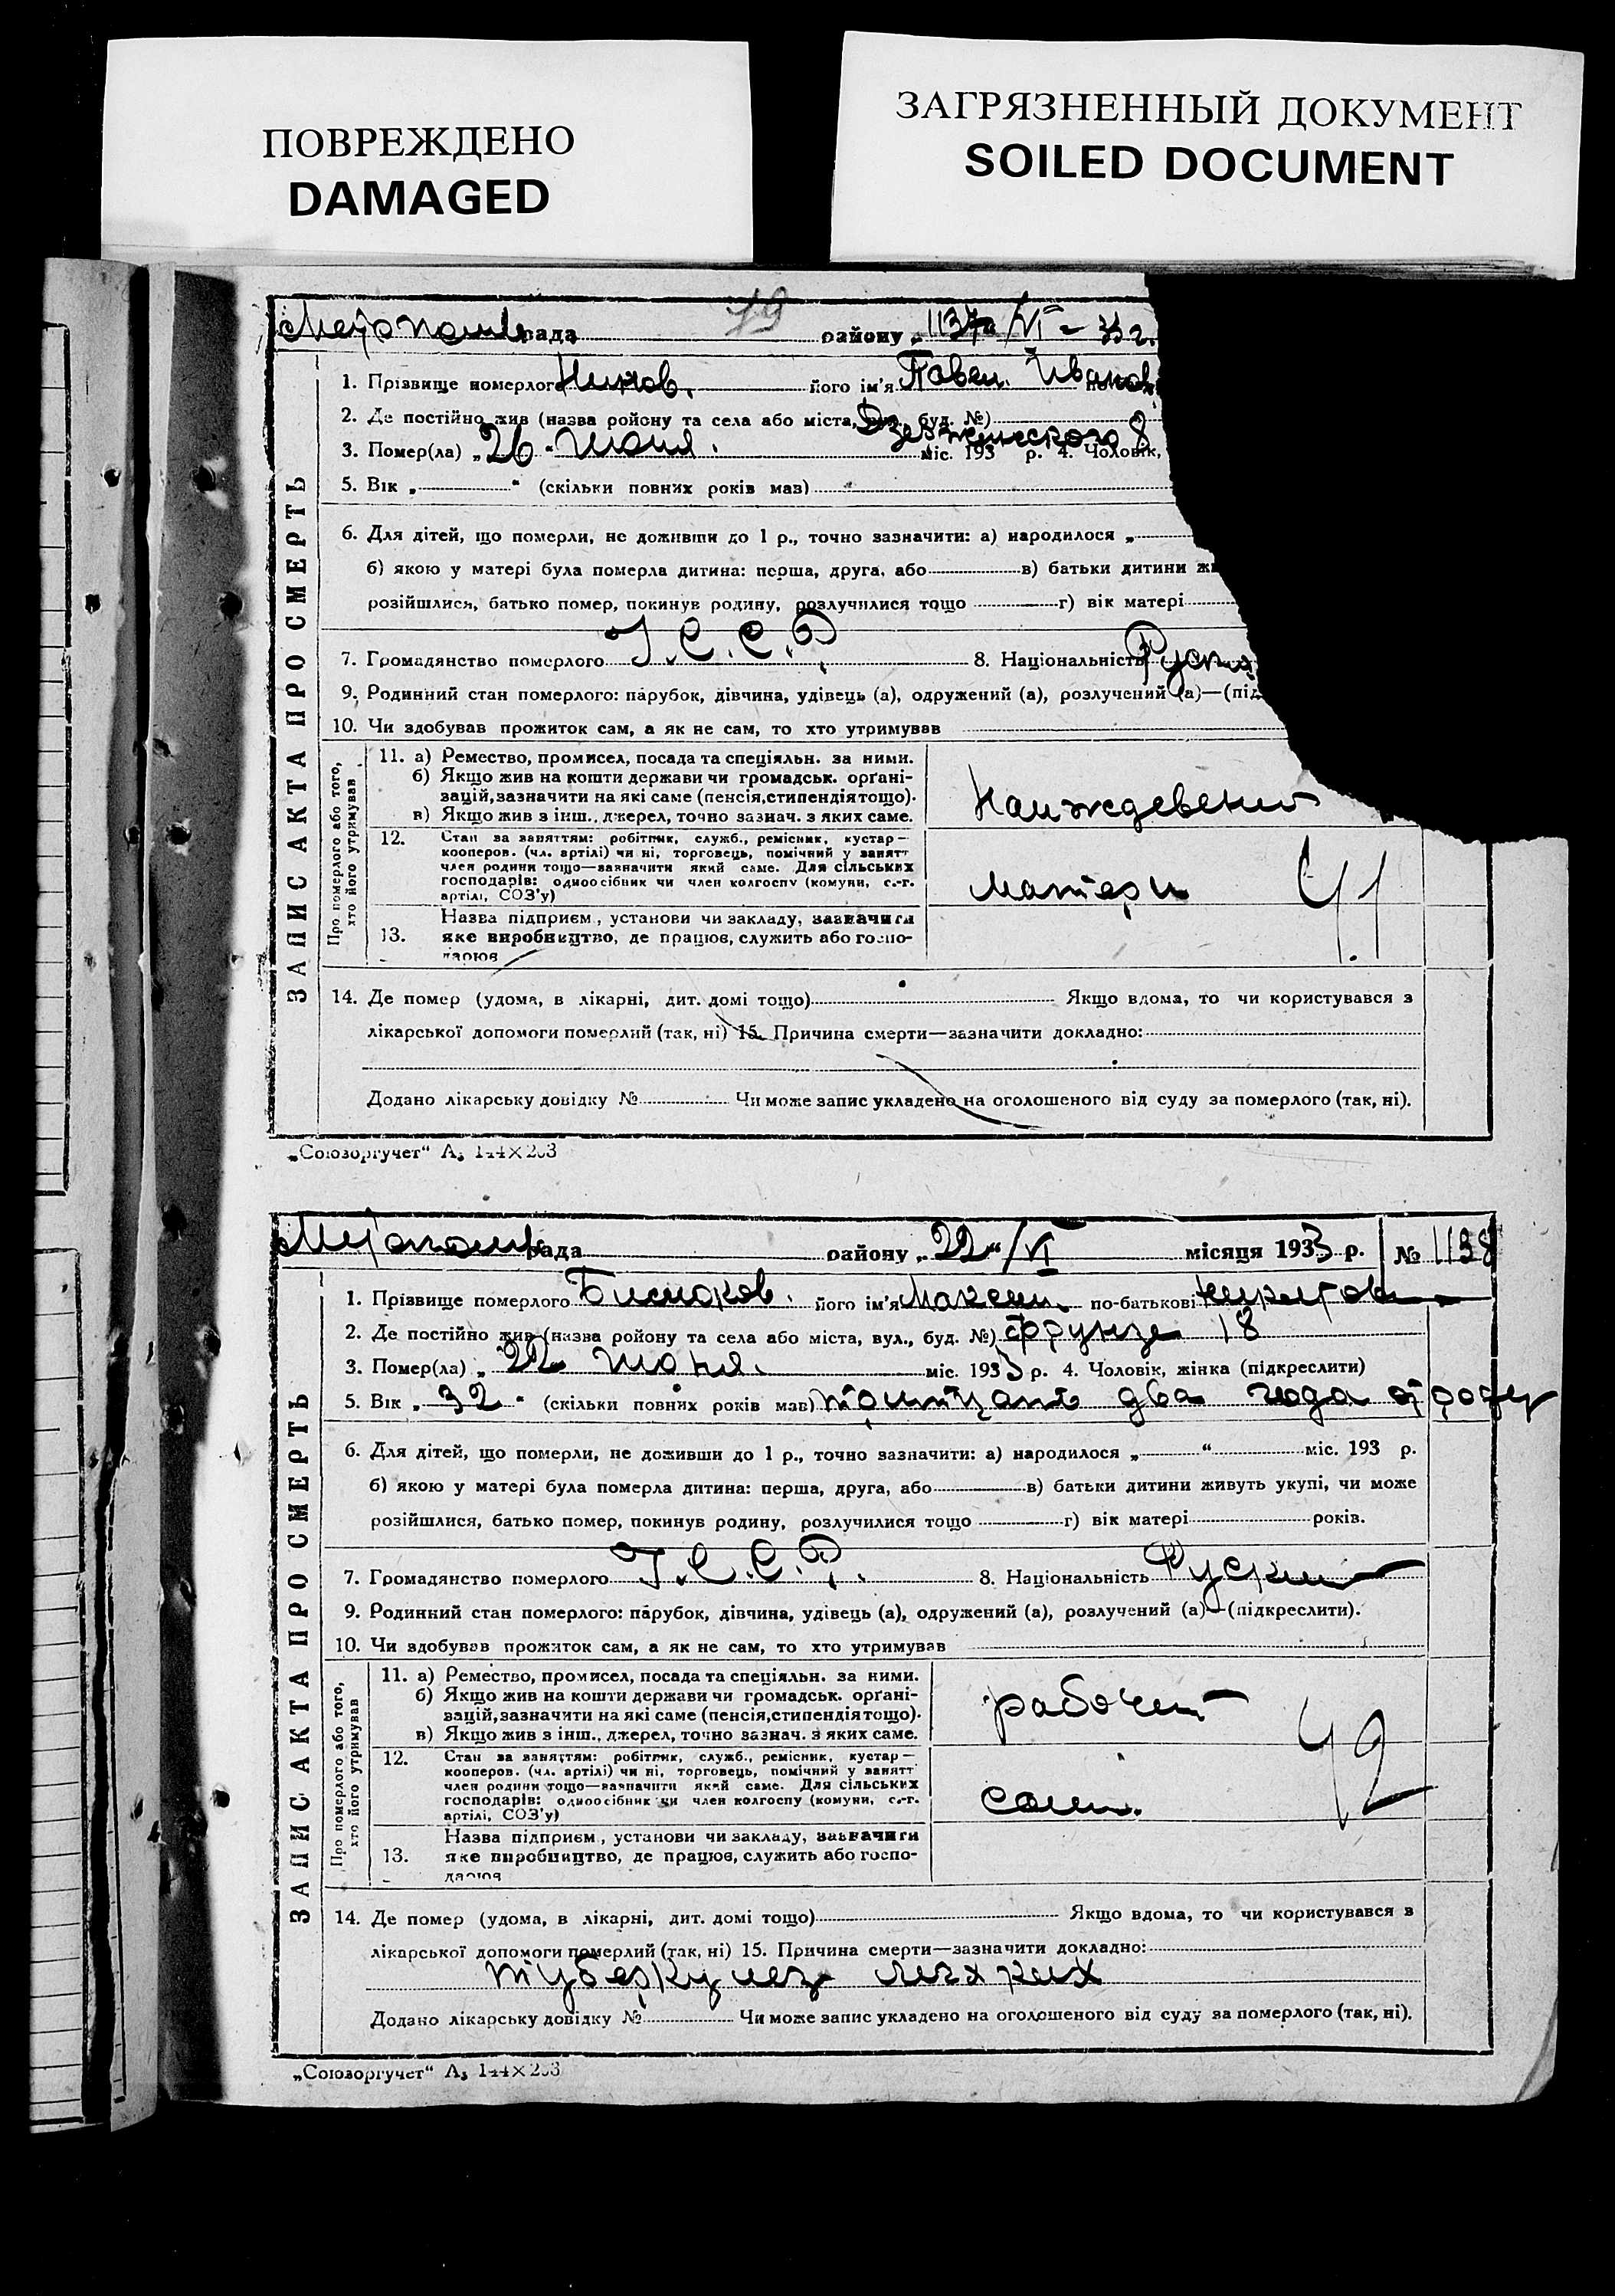 ПОВРЕЖДЕНО
DAMAGED
ЗАГРЯЗНЕННЫЙ ДОКУМЕНТ
SOILED DOCUMENT
рада району „1137 /VI - 33 г.
ЗАПИС АКТА ПРО СМЕРТЬ
1. Прізвище померлого його ім'я Павел Иванов
2. Де постійно жив (назва ройону та села або міста, буд. №) Дзержинского 8
3. Помер(ла) „26" июня. міс. 193 р. 4. Чоловік,
5. Вік „ " (скільки повних років мав)
6. Для дітей, що померли, не доживши до 1 р., точно зазначити: а) народилося „
б) якою у матері була померла дитина: перша, друга, або в) батьки дитини жи
розійшлися, батько помер, покинув родину, розлучилися тощо г) вік матері
7. Громадянство померлого У.С.С.Р. 8. Національність
9. Родинний стан померлого: парубок, дівчина, удівець (а), одружений (а), розлучений (а)—(під
10. Чи здобував прожиток сам, а як не сам, то хто утримував
Про померлого або того, хто його утримував
11. а) Ремество, промисел, посада та спеціяльн. за ними.
б) Якщо жив на кошти держави чи громадськ. орґані-
зацій, зазначити на які саме (пенсія, стипендія тощо).
в) Якщо жив з інш., джерел, точно зазнач. з яких саме.
на иждевении
12. Стан за заняттям: робітник, служб., ремісник, кустар—
кооперов. (чл. артілі) чи ні, торговець, помічний у занятт
член родини тощо—зазначити який саме. Для сільських
господарів: одноосібник чи член колгоспу (комуни, с.-г.
артілі, СОЗ'у)
матери
41
13. Назва підприєм, установи чи закладу, зазначити
яке виробництво, де працює, служить або госпо-
дарює
14. Де помер (удома, в лікарні, дит. домі тощо) Якщо вдома, то чи користувався з
лікарської допомоги померлий (так, ні) 15. Причина смерти—зазначити докладно:
Додано лікарську довідку № Чи може запис укладено на оголошеного від суду за померлого (так, ні).
„Союзоргучет" А5 144×203
рада району „22"/VI місяця 1933 р. № 1138
ЗАПИС АКТА ПРО СМЕРТЬ
1. Прізвище померлого його ім'я Максим по-батькові
2. Де постійно жив (назва ройону та села або міста, вул., буд. №) Фрунзе 18
3. Помер(ла) „22 июня. міс. 1933 р. 4. Чоловік, жінка (підкреслити)
5. Вік „32" (скільки повних років мав) тритцать два года
6. Для дітей, що померли, не доживши до 1 р., точно зазначити: а) народилося „ " міс. 193 р.
б) якою у матері була померла дитина: перша, друга, або в) батьки дитини живуть укупі, чи може
розійшлися, батько помер, покинув родину, розлучилися тощо г) вік матері років.
7. Громадянство померлого У.С.С.Р. 8. Національність Руский
9. Родинний стан померлого: парубок, дівчина, удівець (а), одружений (а), розлучений (а)—(підкреслити).
10. Чи здобував прожиток сам, а як не сам, то хто утримував
Про померлого або того, хто його утримував
11. а) Ремество, промисел, посада та спеціяльн. за ними.
б) Якщо жив на кошти держави чи громадськ. орґані-
зацій, зазначити на які саме (пенсія, стипендія тощо).
в) Якщо жив з інш., джерел, точно зазнач. з яких саме.
рабочей
12. Стан за заняттям: робітник, служб., ремісник, кустар—
кооперов. (чл. артілі) чи ні, торговець, помічний у занятт
член родини тощо—зазначити який саме. Для сільських
господарів: одноосібник чи член колгоспу (комуни, с.-г.
артілі, СОЗ'у)
сам.
42
13. Назва підприєм, установи чи закладу, зазначити
яке виробництво, де працює, служить або госпо-
дарює
14. Де помер (удома, в лікарні, дит. домі тощо) Якщо вдома, то чи користувався з
лікарської допомоги померлий (так, ні) 15. Причина смерти—зазначити докладно:
туберкулез легких
Додано лікарську довідку № Чи може запис укладено на оголошеного від суду за померлого (так, ні).
„Союзоргучет" А5 144×203